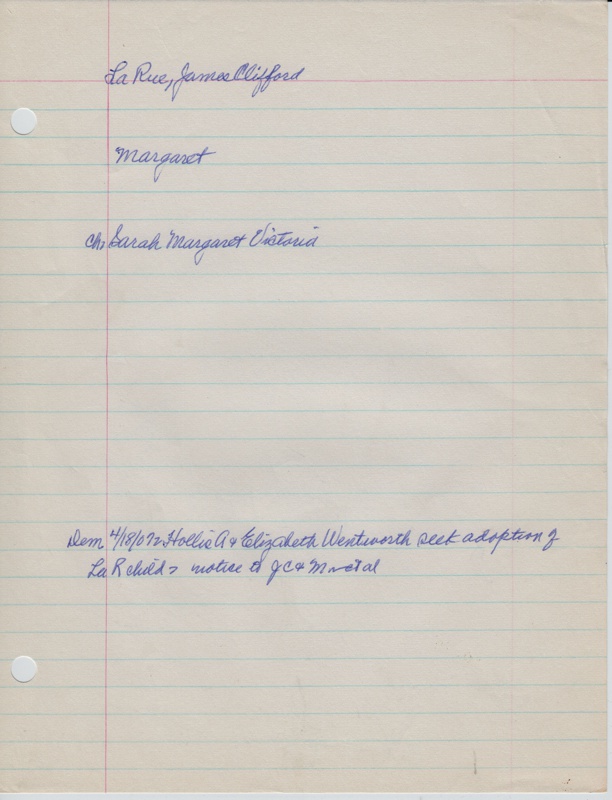 La Rue, James Clifford
Margaret
ch, Sarah Margaret Victoria
Dem 4/18/07 Hollis A & Elizabeth Wentworth seek adoption of
La R child > notice to J C & M et al